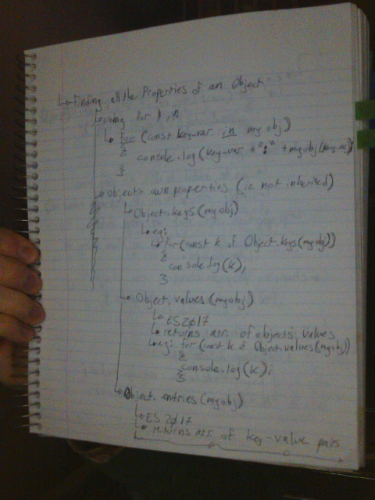 Finding all the Properties of an Object
using for / in
for (const key-var in myobj)
{
console.log(key-var + ":" + myobj[key-var]);
}
Objects own properties (ie not inherited)
Object.keys(myobj)
eg:
for(const k of Object.keys(myobj))
{
console.log(k);
}
Object.values(myobj)
ES2017
returns arr. of objects values
eg: for (const k of Object.values(myobj))
{
console.log(k);
}
Object.entries(myobj)
ES 2017
returns arr of key-value pairs